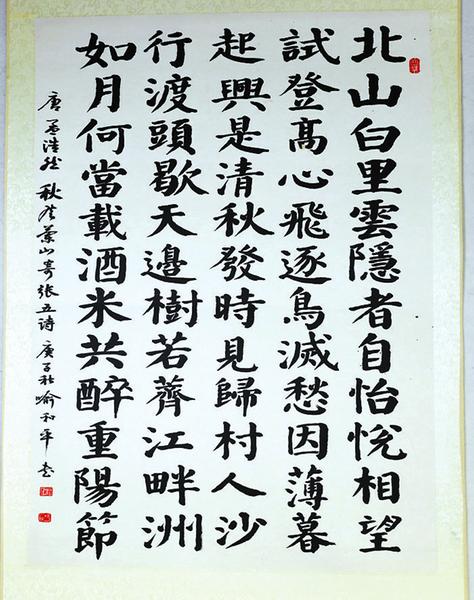 北山白里雲隱者自怡悅相望
試登高心飛逐鳥滅愁因薄暮
起興是清秋發時見歸村人沙
行渡頭歇天邊樹若薺江畔洲
如月何當載酒来共醉重陽節
唐孟浩然秋登蘭山寄張五詩庚子秋喻和平書